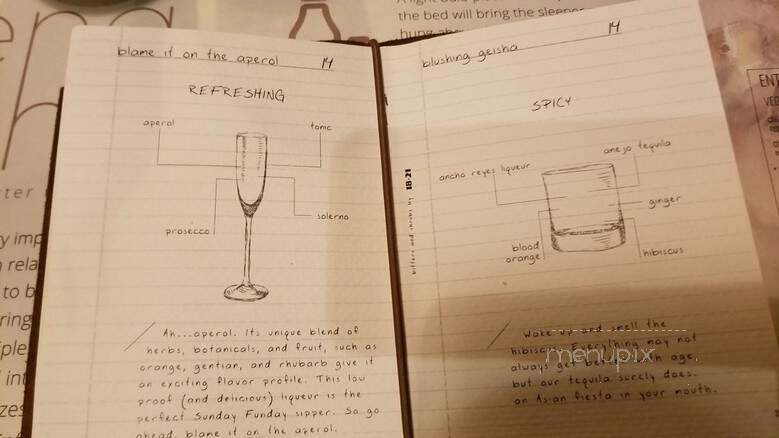 the bed will bring the sleeper
blame it on the aperol 14
REFRESHING
aperol
tonic
prosecco
solerno
Ah...aperol. Its unique blend of
herbs, botanicals, and fruit, such as
orange, gentian, and rhubarb give it
an exciting flavor profile. This low
proof (and delicious) liqueur is the
perfect Sunday Funday sipper. So go
ahead, blame it on the aperol.
bitters and shrubs by 18·21
blushing geisha 14
SPICY
ancho reyes liqueur
anejo tequila
ginger
blood
orange
hibiscus
Wake up and smell the
hibiscus. Everything may not
always get better with age,
but our tequila surely does.
an Asian fiesta in your mouth.
menupix